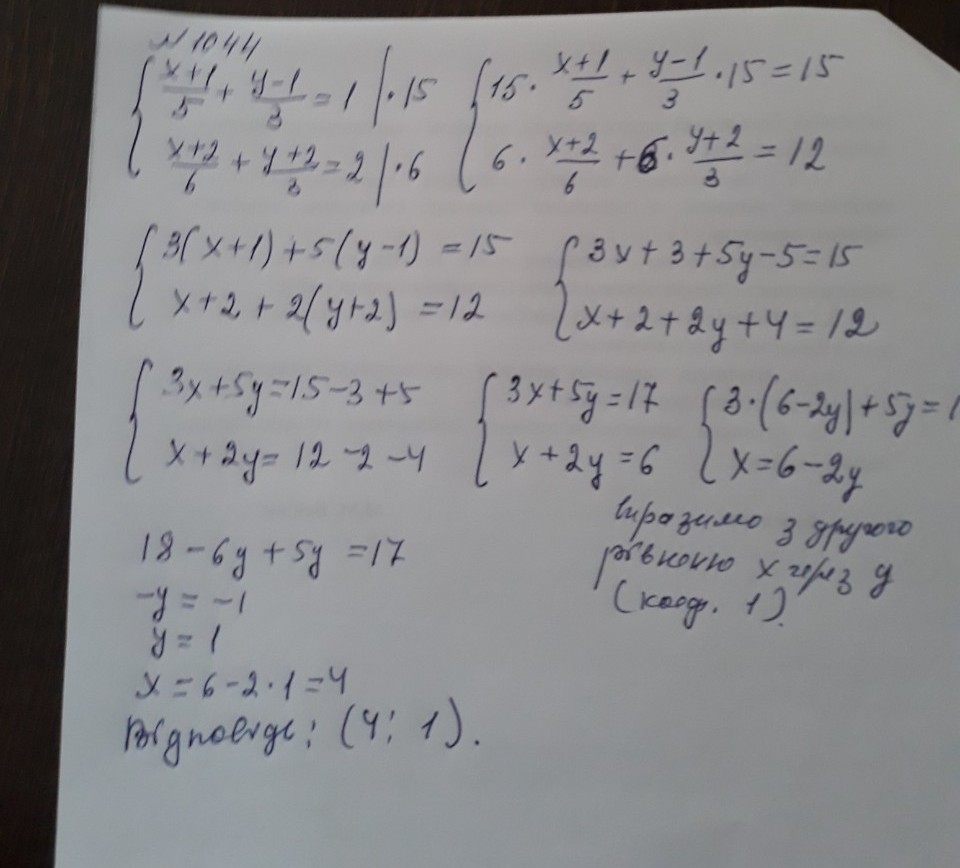 № 1044
{ (x+1)/5 + (y-1)/3 = 1 | · 15
(x+2)/6 + (y+2)/3 = 2 | · 6
{ 15 · (x+1)/5 + (y-1)/3 · 15 = 15
6 · (x+2)/6 + 6 · (y+2)/3 = 12
{ 3(x+1) + 5(y-1) = 15
x+2 + 2(y+2) = 12
{ 3x + 3 + 5y - 5 = 15
x + 2 + 2y + 4 = 12
{ 3x + 5y = 15 - 3 + 5
x + 2y = 12 - 2 - 4
{ 3x + 5y = 17
x + 2y = 6
{ 3 · (6 - 2y) + 5y = 1
x = 6 - 2y
виразимо з другого
рівняння x через y
(коеф. 1).
18 - 6y + 5y = 17
-y = -1
y = 1
x = 6 - 2 · 1 = 4
Відповідь: (4; 1).